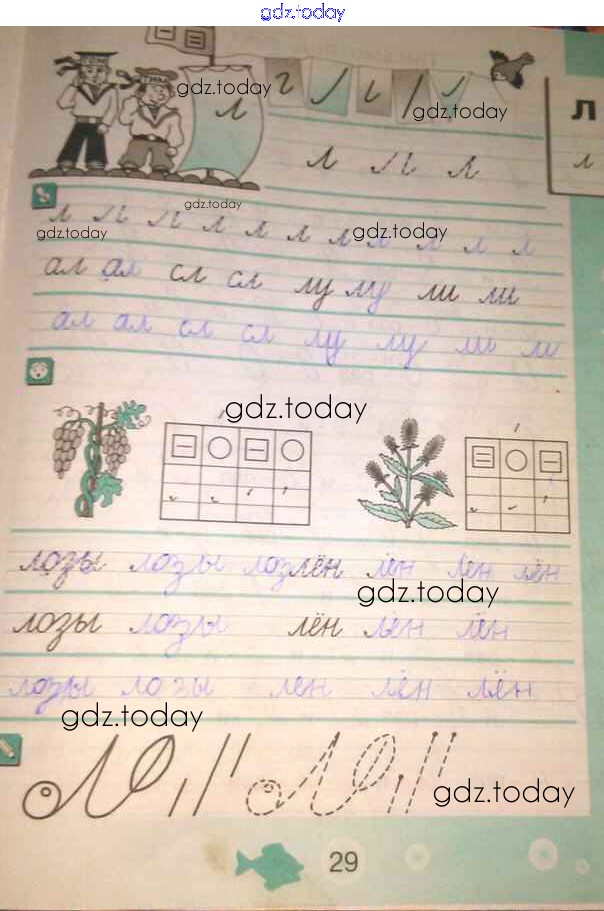 gdz.today
л г л и л
gdz.today
gdz.today
л
л л л
л
gdz.today
л л л л л л л л л л л
gdz.today
gdz.today
ал ал сл сл лу лу ли ли
ал ал сл сл лу лу ли ли
gdz.today
лозы лозы лоз лён лён лён лён
gdz.today
лозы лозы лён лён лён
лозы лозы лен лён лён
gdz.today
gdz.today
29